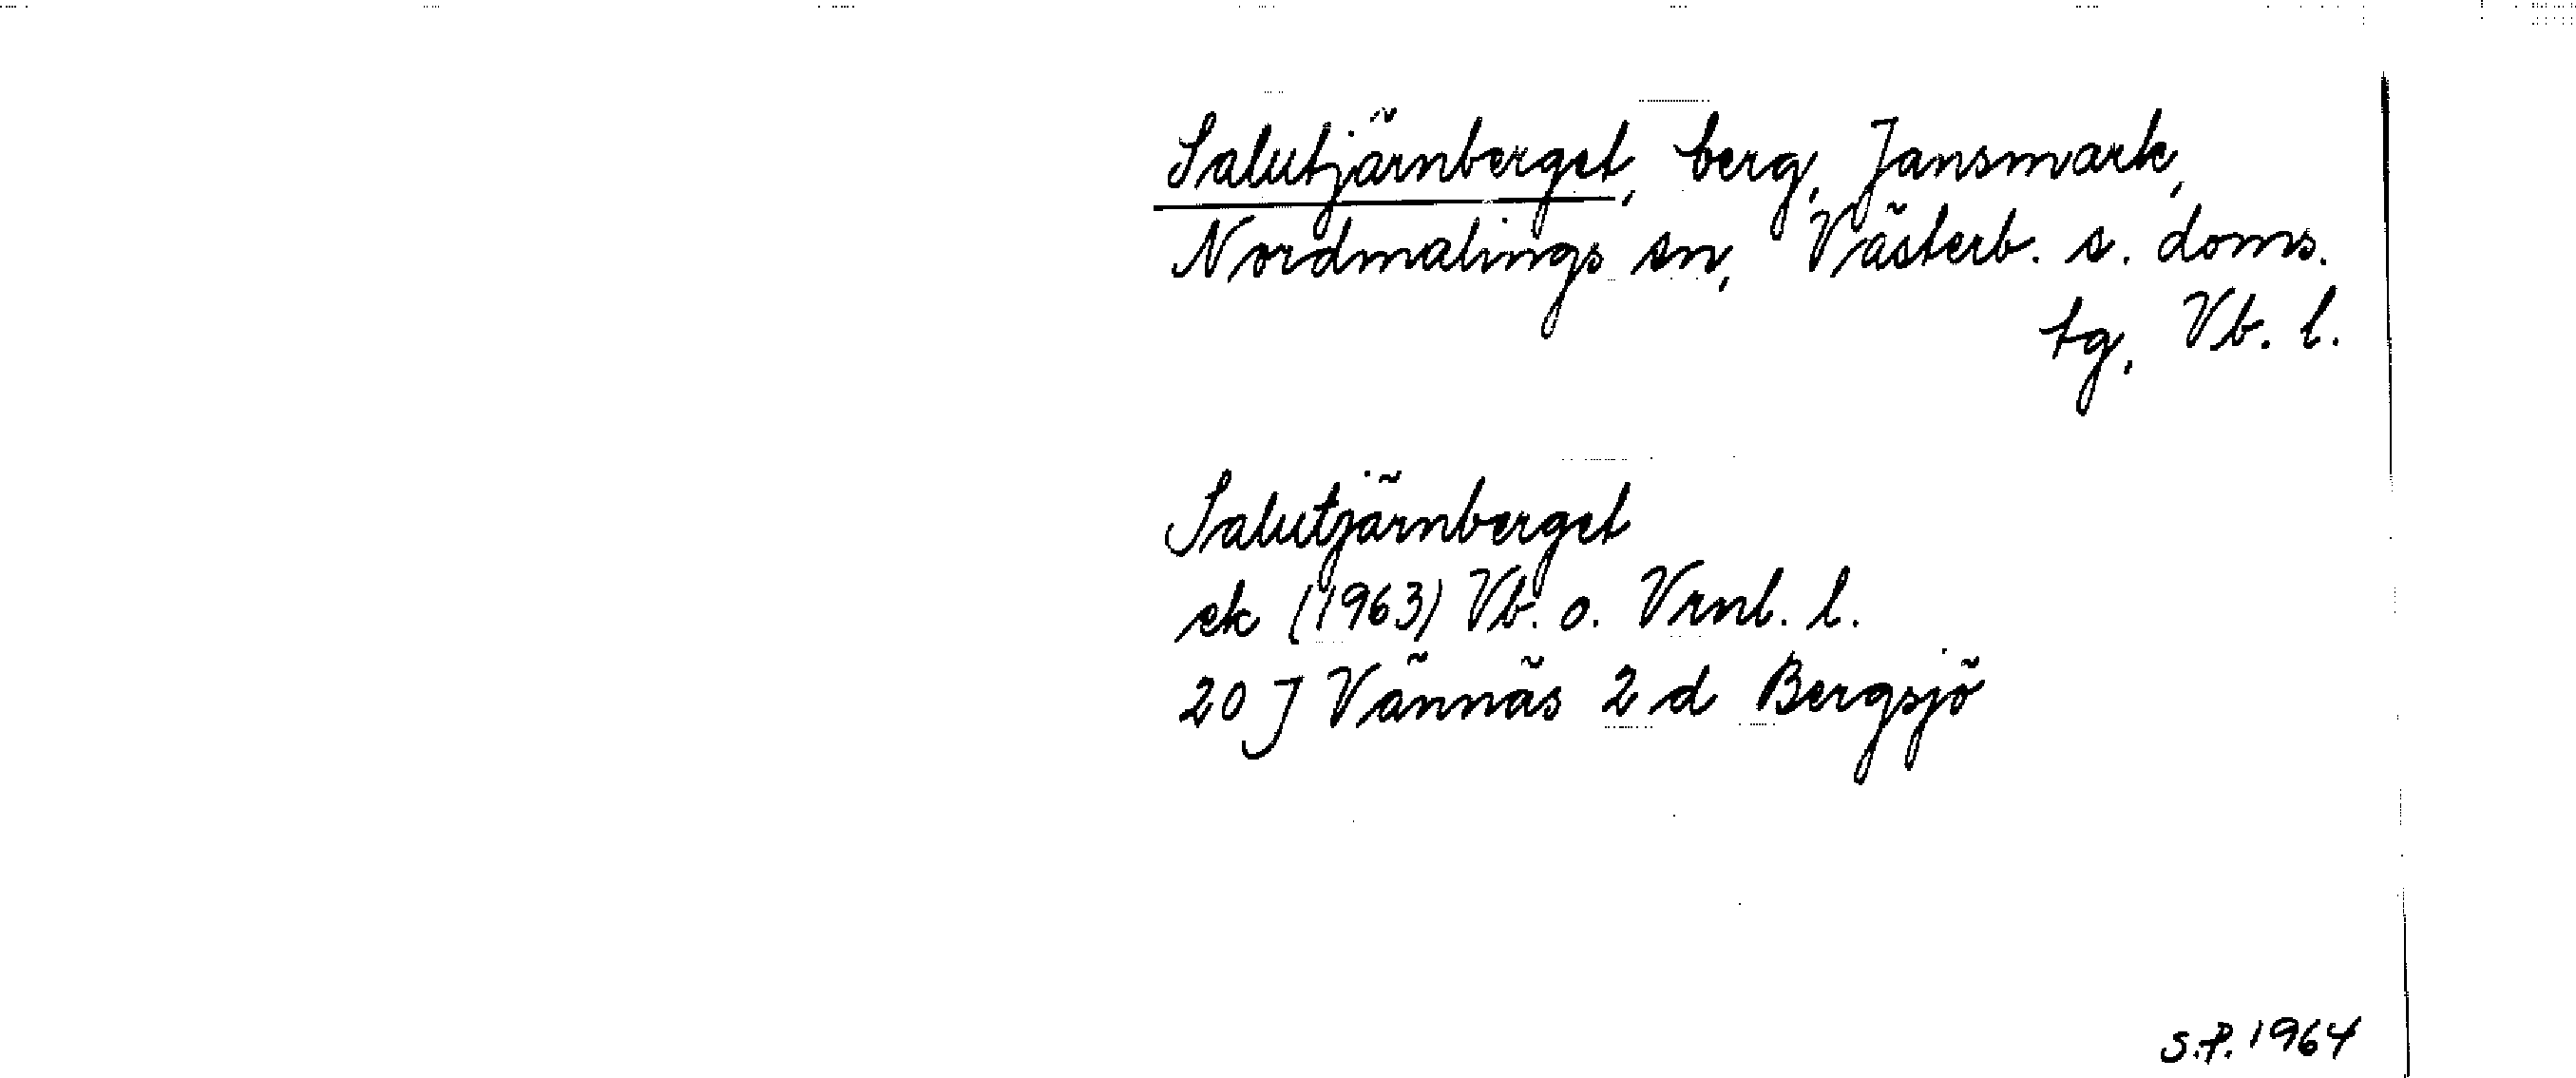 Salutjärnberget, berg, Jansmark,
Nordmalings sn, Västerb. s. doms.
tg, Vb. l.
Salutjärnberget
ek (1963) Vb. o. Vrnl. l.
20 J Vännäs 2 d Bergsjö
S.P. 1964